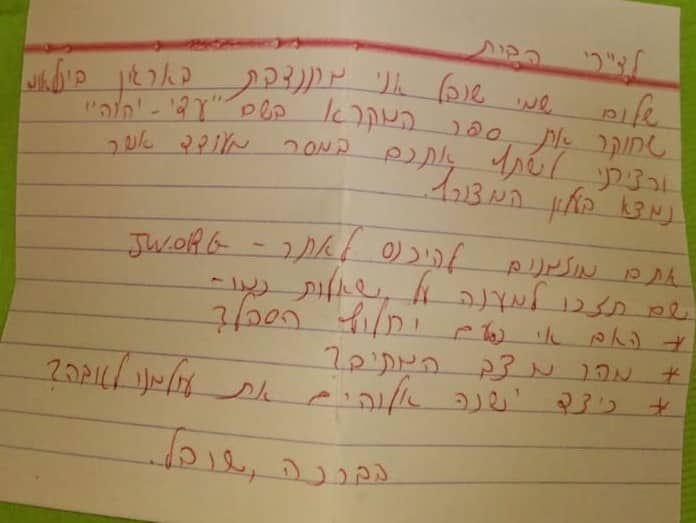 לדיירי הבית
שלום שמי שובל אני מתנדבת בארגון בינלאומי
שחוקר את ספר המקרא בשם "עדי-יהוה"
ורציתי לשתף אתכם במסר מעודד אשר
נמצא בעלון המצורף.
אתם מוזמנים להיכנס לאתר - JW.ORG
שם תזכו למענה על שאלות כמו-
* האם אי פעם יחלוף הסבל?
* מהו מצב המתים?
* כיצד ישנה אלוהים את עולמנו לטובה?
בברכה, שובל.